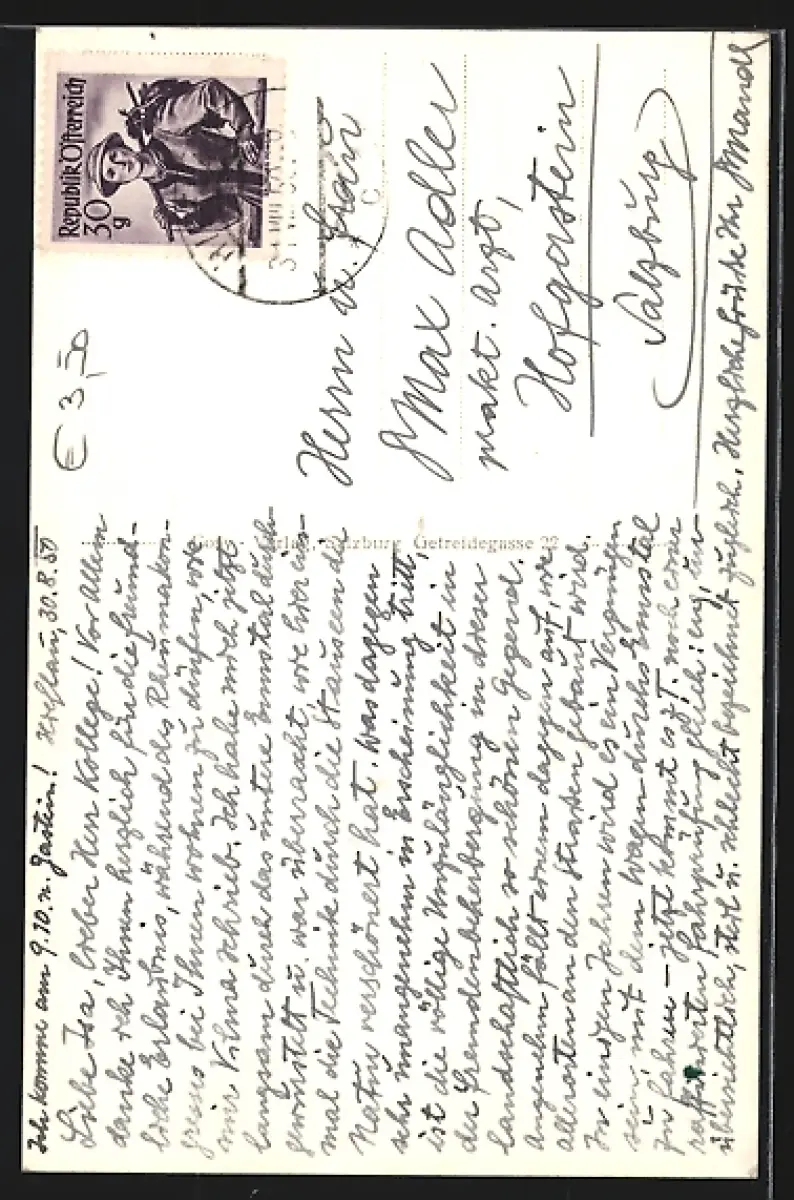 Ich komme am 9.10. n. Gastein! Hieflau, 30.8.50
Liebe Isa, lieber Herr Kollege! Vor Allem
danke ich Ihnen herzlich für die freund-
liche Erlaubnis, während des Rheumakon-
gresses bei Ihnen wohnen zu dürfen, wie
mir Vilma schrieb. Ich habe mich jetzt
langsam durch das untere Ennstal durch-
gewurstelt u. war überrascht, wie hier ein-
mal die Technik durch die Stauseen die
Natur verschönert hat. Was dagegen
sehr unangenehm in Erscheinung tritt,
ist die völlige Unzulänglichkeit in
der Fremdenbeherbergung in dieser
landschaftlich so schönen Gegend.
Angenehm fällt einem dagegen auf, wie
allerorten an den Straßen gebaut wird
In einigen Jahren wird es ein Vergnügen
sein, mit dem Wagen durchs Ennstal
zu fahren – jetzt kommt es z. T. noch einer
raffinierten Fahrprüfung gleich: eng, un-
übersichtlich, steil u. schlecht bezeichnet zugleich. Herzliche Grüße Ihr
Republik Österreich
30 g
Herrn u. Frau
Max Adler
prakt. Arzt,
Hofgastein
Salzburg
€ 3,50
Verlag, Salzburg, Getreidegasse 22